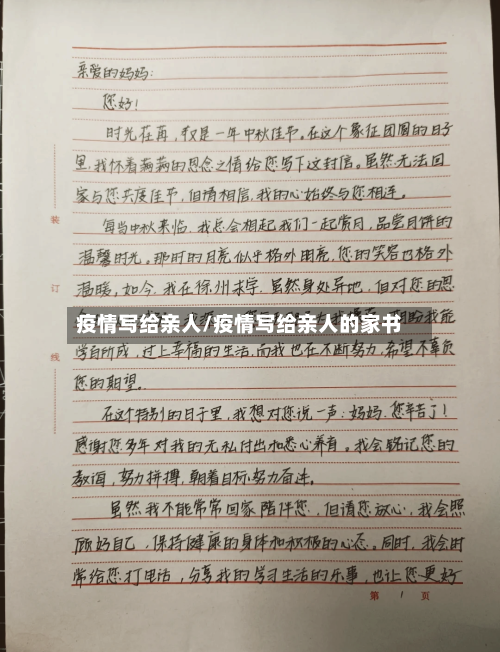 亲爱的妈妈:
您好!
时光荏苒,又是一年中秋佳节。在这个象征团圆的日子
里,我怀着满满的思念之情给您写下这封信。虽然无法回
家与您共度佳节,但请相信,我的心始终与您相连。
每当中秋来临,我总会想起我们一起赏月,品尝月饼的
温馨时光。那时的月亮似乎格外明亮,您的笑容也格外
温暖,如今,我在徐州求学,虽然身处异地,但对您的思
疫情写给亲人/疫情写给亲人的家书
我能
学有所成,过上幸福的生活,而我也在不断努力,希望不辜负
您的期望。
在这个特别的日子里,我想对您说一声:妈妈,您辛苦了!
感谢您多年对我的无私付出和悉心养育。我会铭记您的
教诲,努力拼搏,朝着目标努力奋进。
虽然我不能常常回家陪伴您,但请您放心,我会照
顾好自己,保持健康的身体和积极的心态。同时,我会时
常给您打电话,分享我的学习生活的乐事,也让您更好
装
订
线
第 1 页